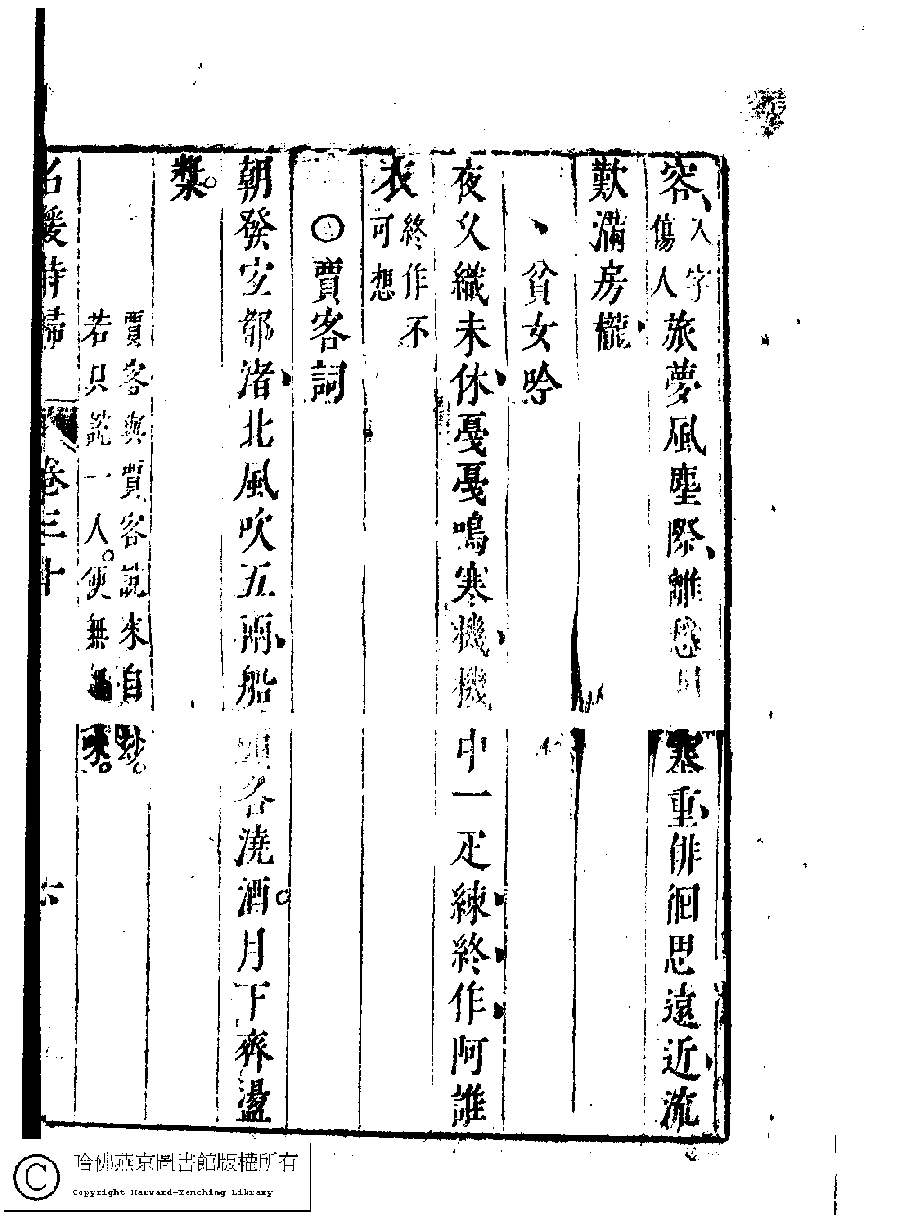 容入字傷人旅夢風塵際離愁月寒重俳徊思遠近流
歎滿房櫳
貧女吟
夜乂織未休戞戞鳴寒機機中一疋練終作阿誰
衣終作不可想
○賈客詞
朝發安都渚北風吹五兩船頭各澆酒月下齊盪
槳
賈客與賈客說來自妙
若只說一人便無味
名媛詩歸 卷三十 六
哈佛燕京圖書館版權所有
Copyright Harvard-Yenching Library